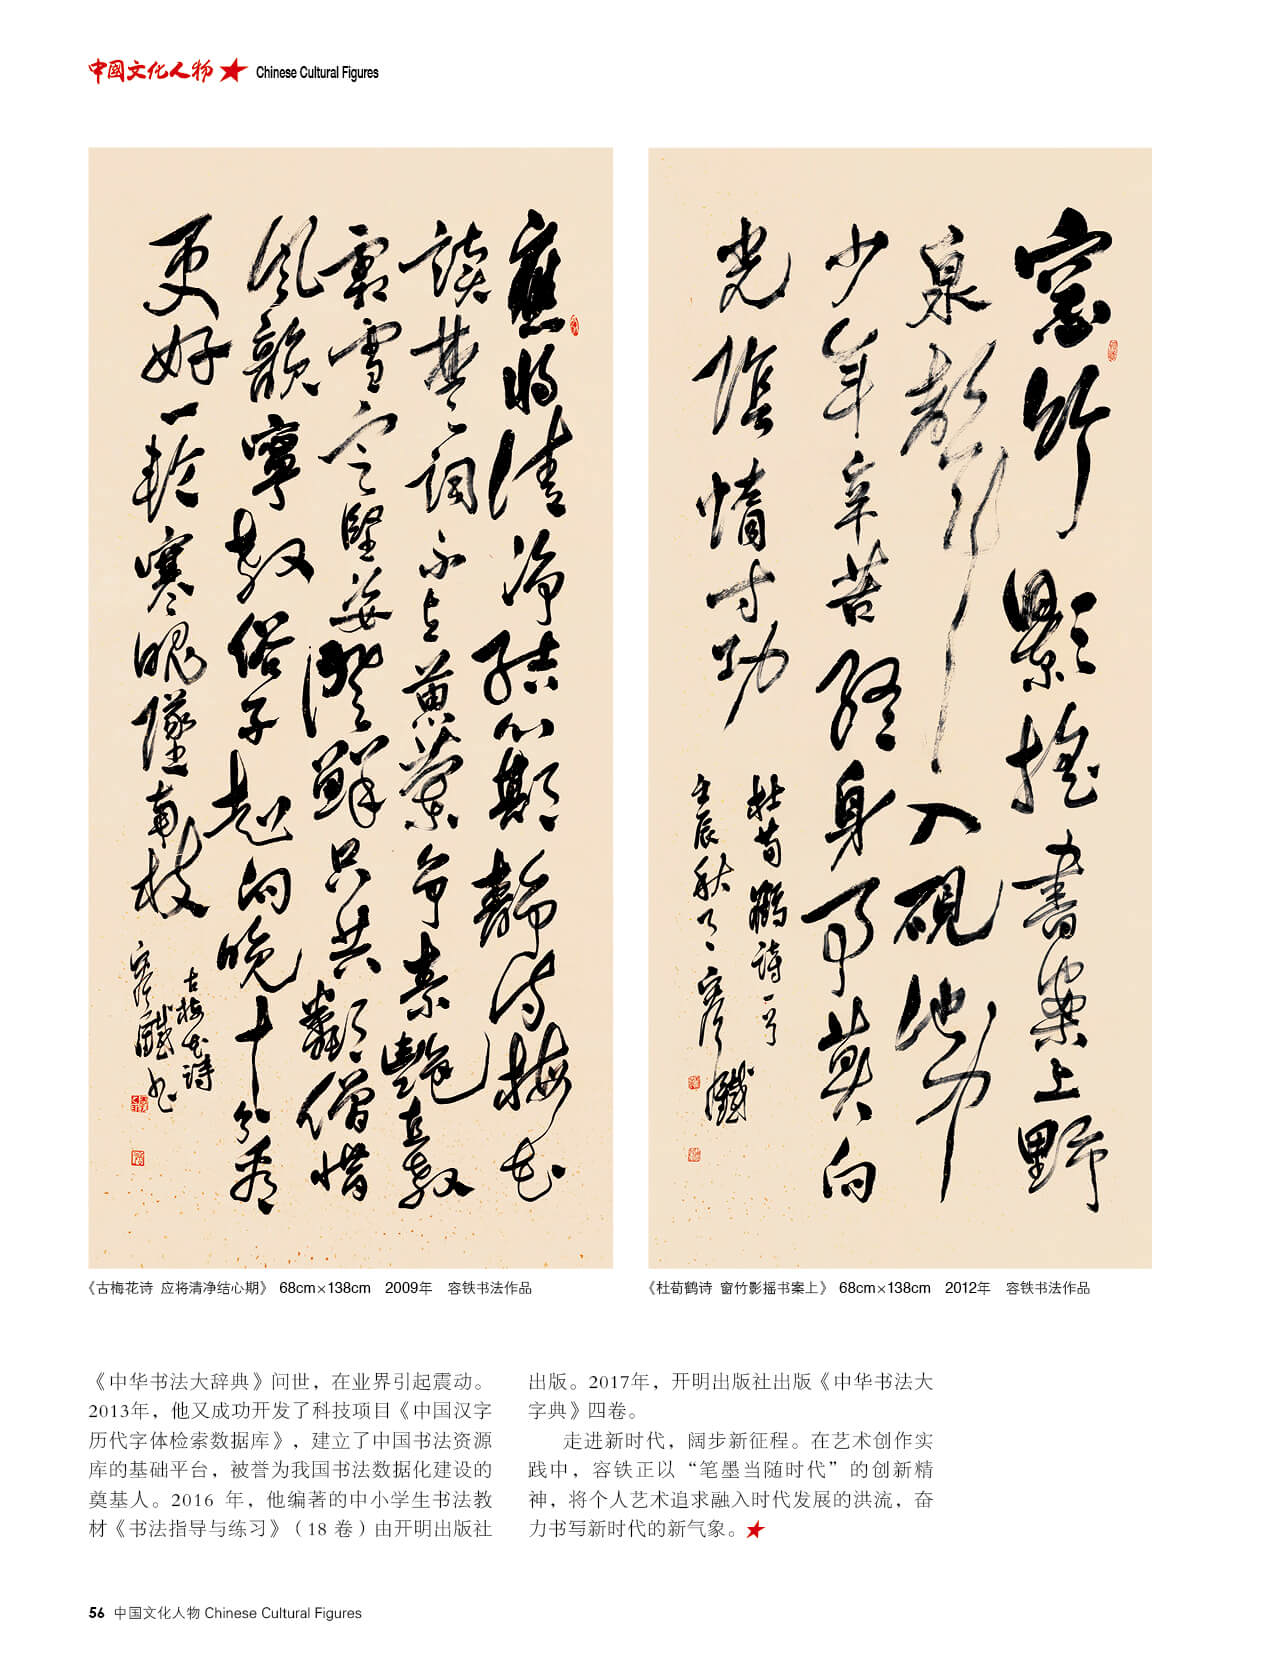 中國文化人物 Chinese Cultural Figures
應將清淨結心期靜梅花
讀楚詞不黃素艷直教
霜雪定堅姿澄鮮只共鄰僧惜
風韻寧教俗子晚十分看
更好一輪寒魄墜南枝
古梅花詩
容鐵書
窗竹影搖書案上野
泉聲入硯池中
少年辛苦終身事莫向
光陰惰寸功
杜荀鶴詩一首
壬辰秋月容鐵
《古梅花诗 应将清净结心期》 68cm×138cm 2009年 容铁书法作品
《杜荀鹤诗 窗竹影摇书案上》 68cm×138cm 2012年 容铁书法作品
《中华书法大辞典》问世，在业界引起震动。
2013年，他又成功开发了科技项目《中国汉字
历代字体检索数据库》，建立了中国书法资源
库的基础平台，被誉为我国书法数据化建设的
奠基人。2016 年，他编著的中小学生书法教
材《书法指导与练习》（18 卷）由开明出版社
出版。2017年，开明出版社出版《中华书法大
字典》四卷。
走进新时代，阔步新征程。在艺术创作实
践中，容铁正以“笔墨当随时代”的创新精
神，将个人艺术追求融入时代发展的洪流，奋
力书写新时代的新气象。
56 中国文化人物 Chinese Cultural Figures